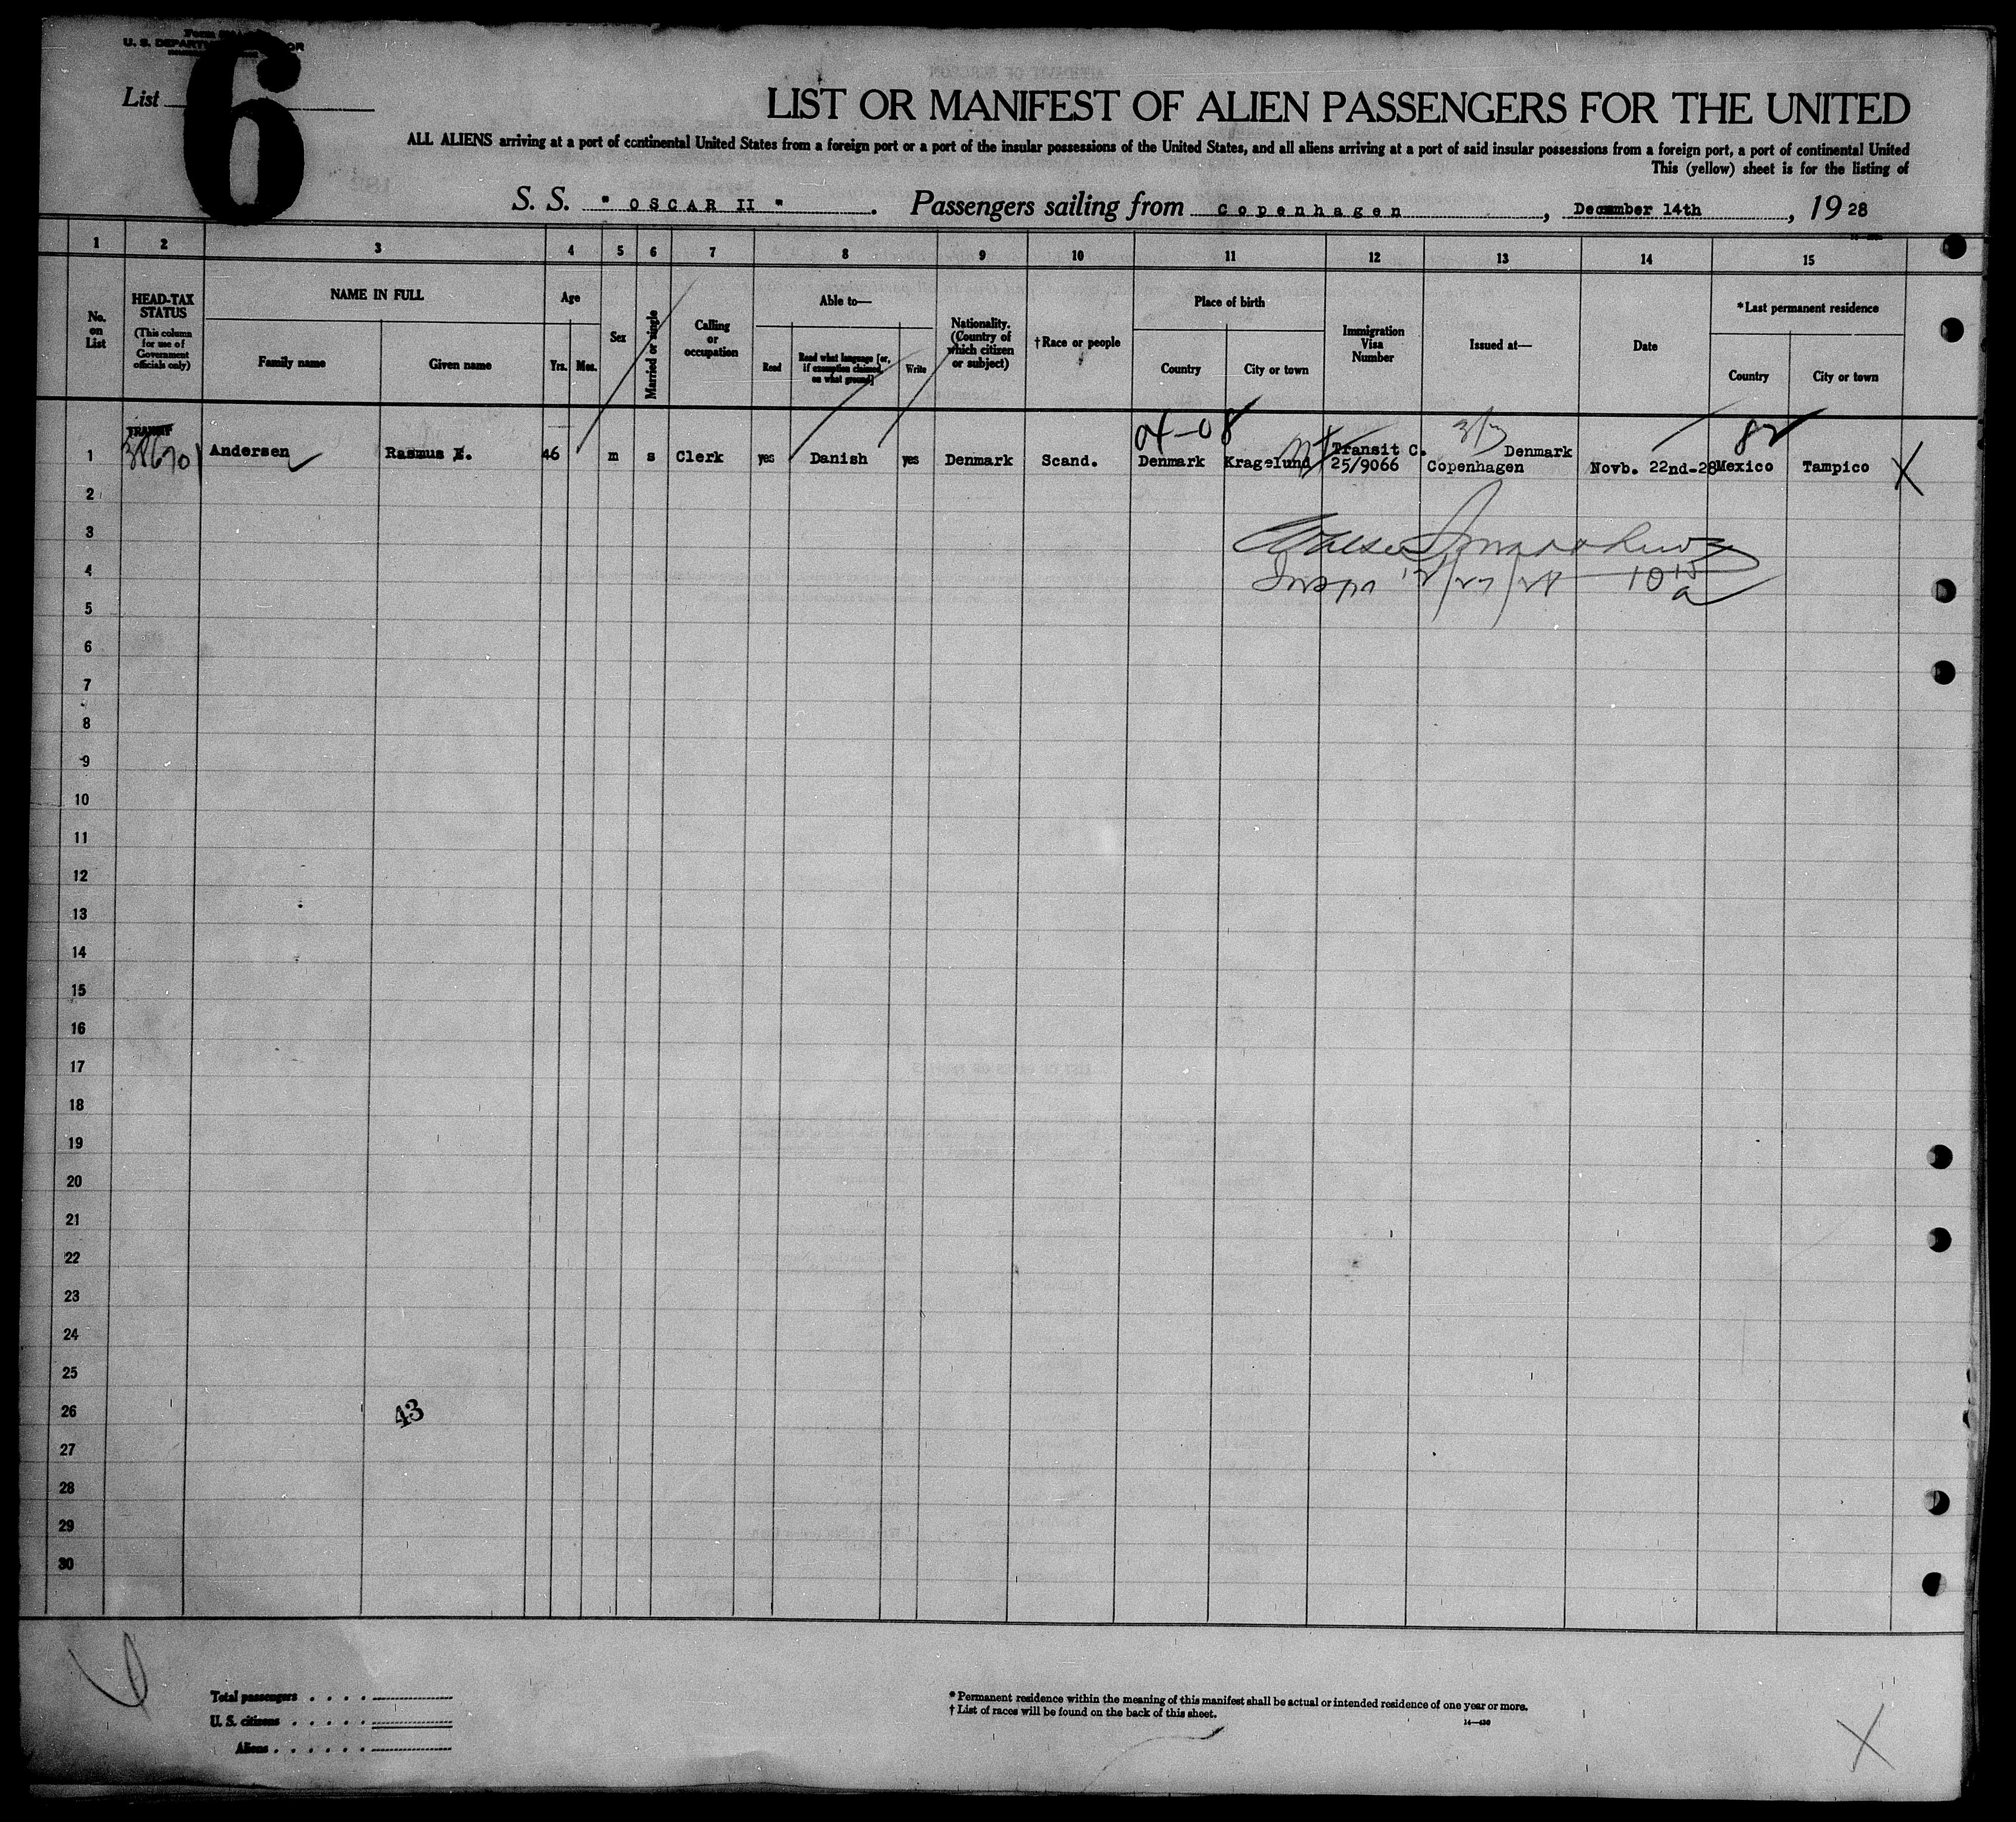 U. S. DEPARTMENT OF LABOR
List 6
LIST OR MANIFEST OF ALIEN PASSENGERS FOR THE UNITED
ALL ALIENS arriving at a port of continental United States from a foreign port or a port of the insular possessions of the United States, and all aliens arriving at a port of said insular possessions from a foreign port, a port of continental United
This (yellow) sheet is for the listing of
S. S. " OSCAR II " . Passengers sailing from Copenhagen , December 14th , 19 28
1 2 3 4 5 6 7 8 9 10 11 12 13 14 15
No. on List
HEAD-TAX STATUS (This column for use of Government officials only)
NAME IN FULL
Family name
Given name
Age
Yrs. Mos.
Sex
Married or single
Calling or occupation
Able to—
Read
Read what language [or, if exemption claimed, on what ground]
Write
Nationality. (Country of which citizen or subject)
†Race or people
Place of birth
Country
City or town
Immigration Visa Number
Issued at—
Date
*Last permanent residence
Country
City or town
04-08 82
1 TRANSIT Andersen Rasmus 46 m s Clerk yes Danish yes Denmark Scand. Denmark Kragelund Transit C. 25/9066 Denmark Copenhagen Novb. 22nd-28 Mexico Tampico X
2
3
4 12/27/28 10 15 a
5
6
7
8
9
10
11
12
13
14
15
16
17
18
19
20
21
22
23
24
25
26 43
27
28
29
30
Total passengers
U. S. citizens
Aliens
* Permanent residence within the meaning of this manifest shall be actual or intended residence of one year or more.
† List of races will be found on the back of this sheet.
14—430
X